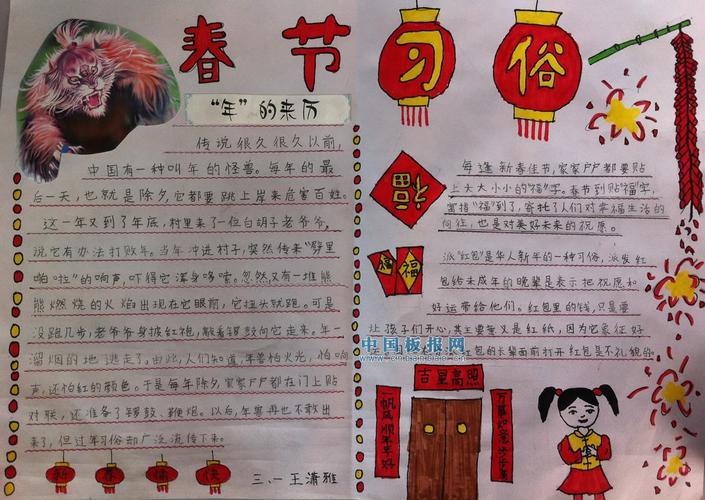 春节
习俗
"年"的来历
传说很久很久以前,
中国有一种叫年的怪兽。每年的最
后一天,也就是除夕,它都要跳上岸来危害百姓。
这一年又到了年底,村里来了一位白胡子老爷爷,
说它有办法打败年。当年冲进村子,突然传来"劈里
啪啦"的响声,吓得它浑身哆嗦。忽然,又有一堆熊
熊燃烧的火焰出现在它眼前,它扭头就跑。可是
没跑几步,老爷爷身披红袍,敲着锣鼓向它走来。年一
溜烟的地逃走了。由此,人们知道,年害怕火光,怕响
声,还怕红的颜色。于是每年除夕,家家户户都在门上贴
对联,还准备了锣鼓、鞭炮。以后,年兽再也不敢出
来了,但过年习俗却广泛流传下来。
新春愉快
三、一王潇雅
福
每逢新春佳节,家家户户都要贴
上大大小小的"福"字。春节到贴"福"字,
"福"到了,寄托了人们对幸福生活的
向往,也是对美好未来的祝愿。
福福
派"红包"是华人新年的一种习俗,派发红
包给未成年的晚辈是表示把祝愿和
好运带给他们。红包里的钱,只是要
让孩子们开心,其主要意义是红纸,因为它象征好
红包的长辈面前打开红包是不礼貌的。
中国板报网
吉星高照
一帆风顺年年好
万事如意步步高